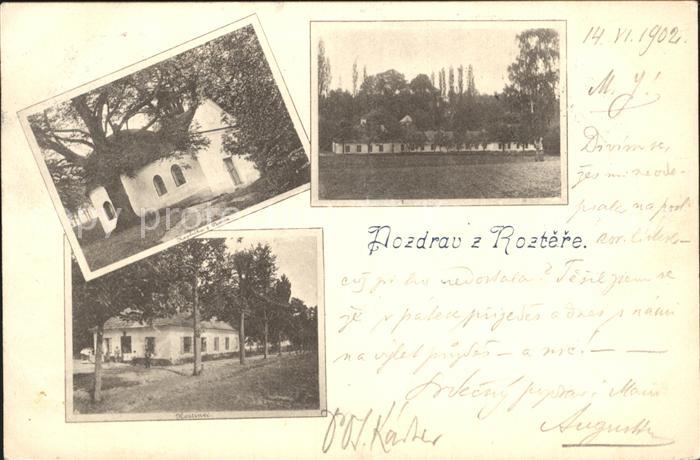 14. VI. 1902.
M. J!
Divím se,
žes mi neode-
psala, na posl.
kor. lístek
což jsi ho nedostala? Těšil jsem se
že v pátek přijedeš a dnes s námi
na výlet půjdeš – a nic! –
Srdečný pozdrav! Mám
Augustin
Pozdrav z Roztěře.
Hostinec.